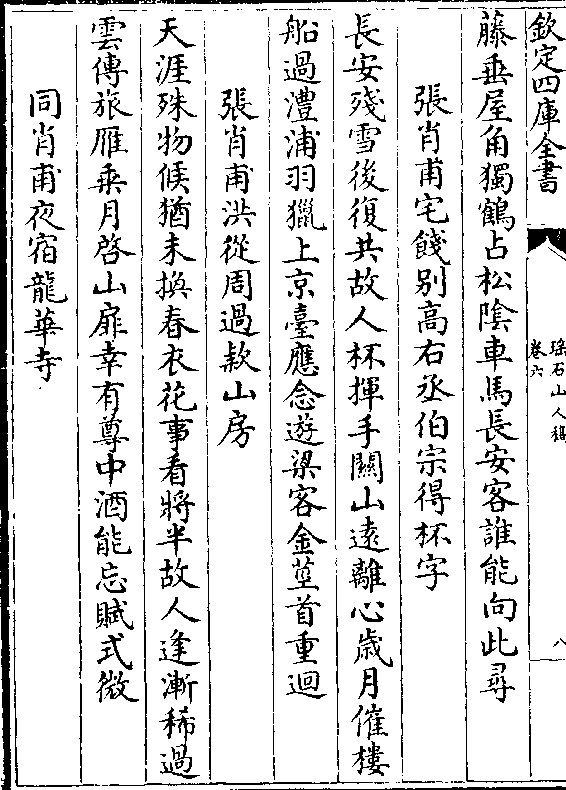 欽定四庫全書
瑤石山人稿
卷六
八
藤垂屋角獨鶴占松陰車馬長安客誰能向此尋
張肖甫宅餞別高右丞伯宗得杯字
長安殘雪後復共故人杯揮手關山遠離心歲月催樓
船過澧浦羽獵上京臺應念遊梁客金莖首重迴
張肖甫洪從周過款山房
天涯殊物候猶未換春衣花事看將半故人逢漸稀過
雲傳旅雁乘月啓山扉幸有尊中酒能忘賦式微
同肖甫夜宿龍華寺